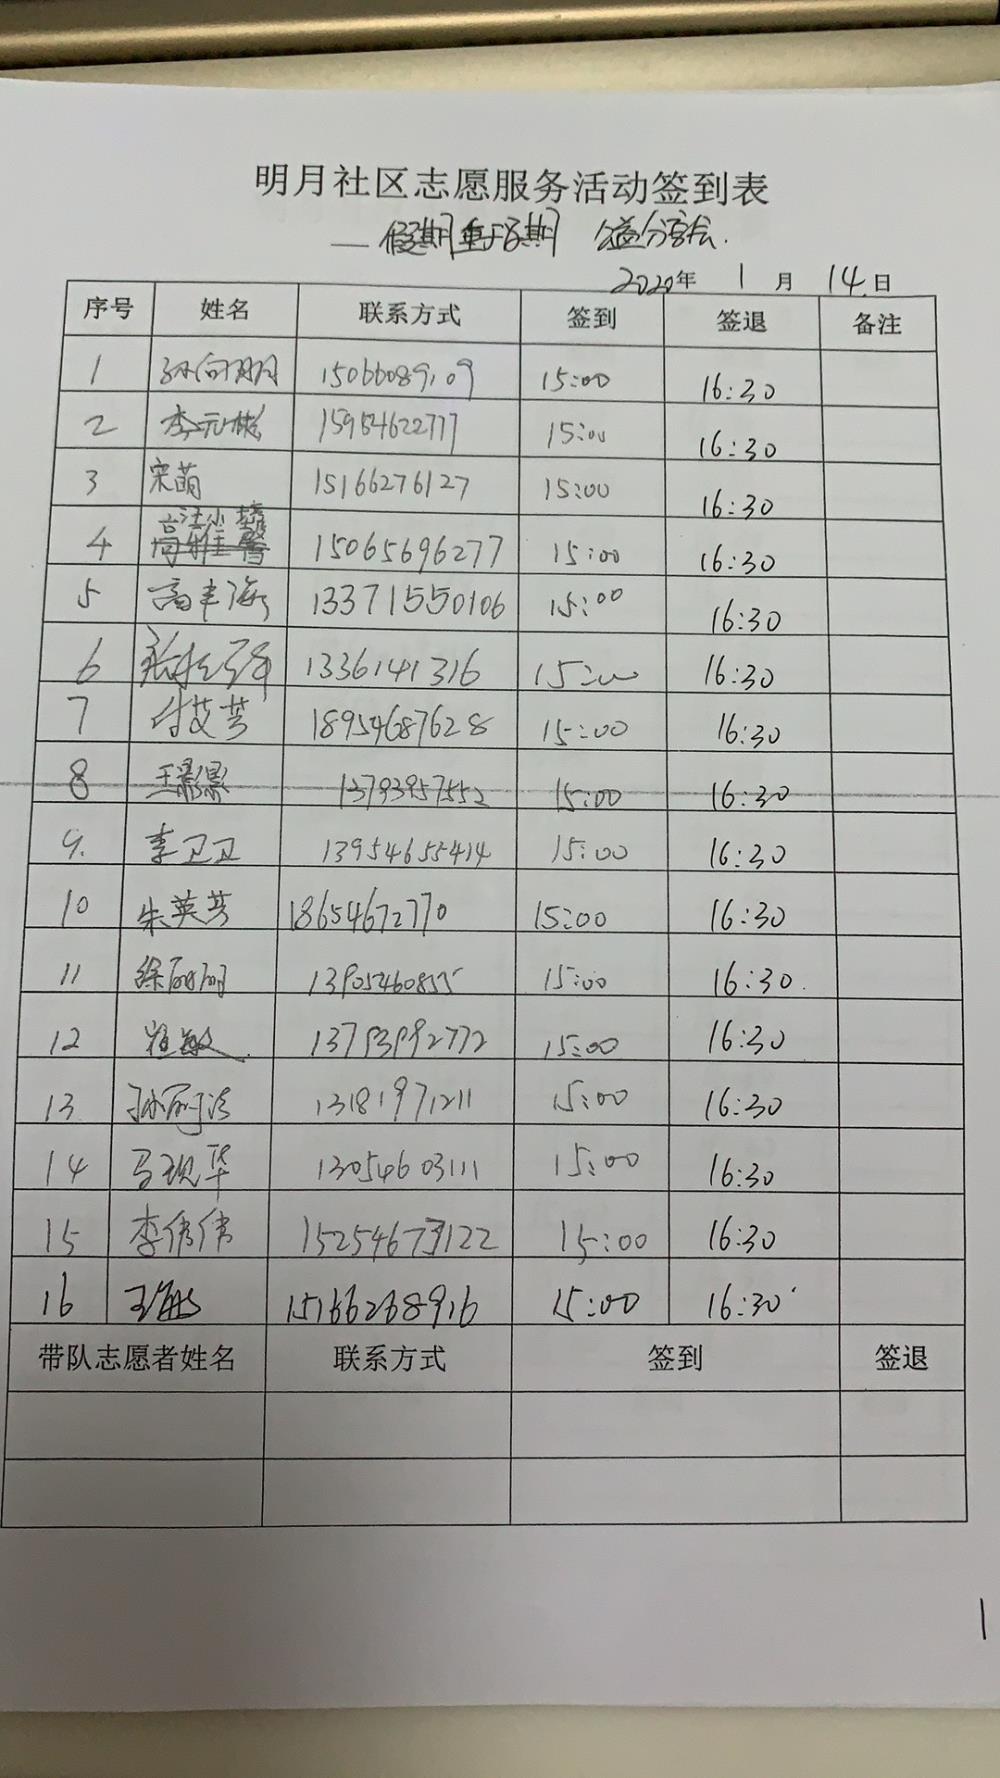 明月社区志愿服务活动签到表
—假期重于学期 公益分享会.
2020年 1 月 14 日
序号 姓名 联系方式 签到 签退 备注
1 孙向明月 15066089109 15:00 16:30
2 李元彬 15954622777 15:00 16:30
3 宋萌 15166276127 15:00 16:30
4 15065696277 15:00 16:30
5 高丰海 13371550106 15:00 16:30
6 1336141316 15:00 16:30
7 付艾芳 18954687628 15:00 16:30
8 王 13793957552 15:00 16:30
9. 李卫卫 13954655414 15:00 16:30
10 朱英芳 18654672770 15:00 16:30
11 徐丽丽 13905460855 15:00 16:30.
12 崔敏 13793992772 15:00 16:30
13 孙丽 13181971211 15:00 16:30
14 马现华 13054603111 15:00 16:30
15 李伟伟 15254673122 15:00 16:30
16 王 15166268916 15:00 16:30
带队志愿者姓名 联系方式 签到 签退
1